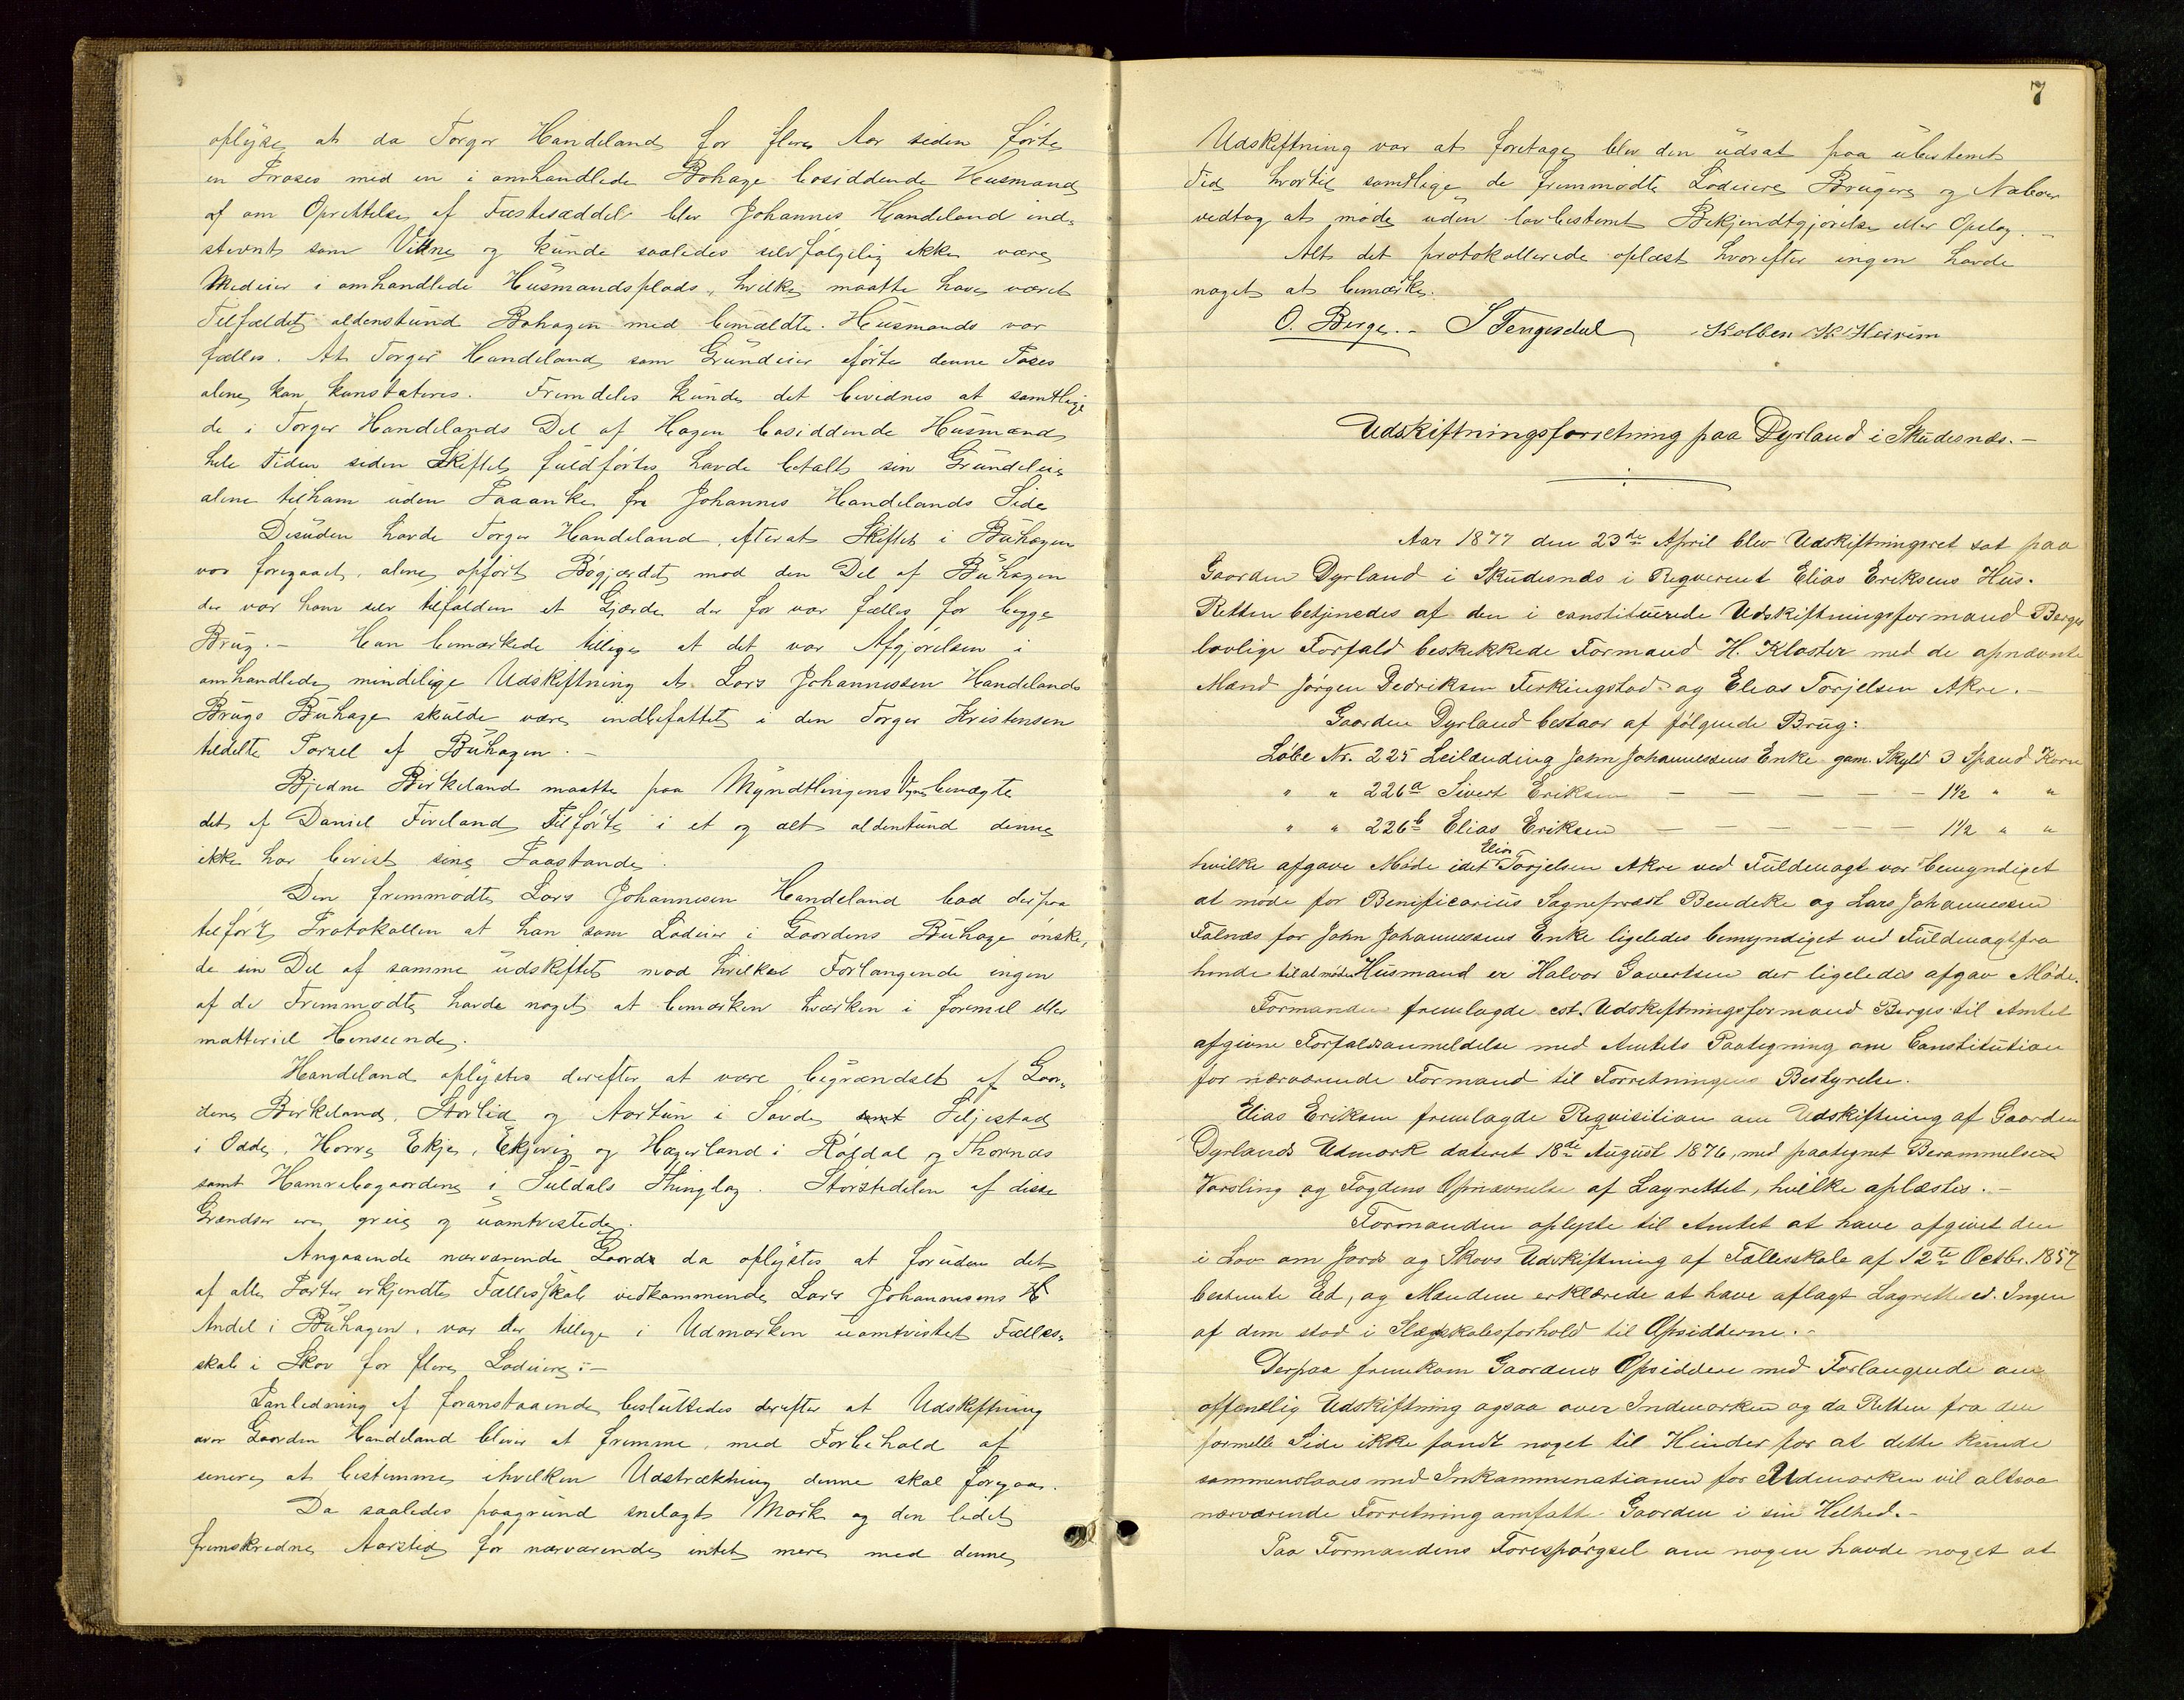 oplyse at da Torger Handeland for flere Aar siden førte
en Proses med en i omhandlede Bøhage bosiddende Husmand
af om Oprettelse af Fæstesæddel blev Johannes Handeland ind-
stevnt som Vittne og kunde saaledes selvfølgelig ikke være
Medeier i omhandlede Husmandsplads, hvilke maatte have været
Tilfældet aldenstund Bøhagen med bemældte Husmands var
fælles. At Torger Handeland som Grundeier førte denne Proses
alene kan konstateres. Fremdeles kunde det bevidnes at samtlige
de i Torger Handelands Del af Hagen bosiddende Husmænd
hele Tiden siden Skiftet fuldførtes havde betalt sin Grundleie
alene til ham uden Paaanke fra Johannes Handelands Side
Desuden havde Torger Handeland, efterat Skiftet i Bøhagen
var foregaaet, alene opført Bøgjærdet mod den Del af Bøhagen
der var ham selv tilfalden et Gjærde der før var fælles for begge
Brug. – Han bemærkede tillige at det var Afgjørelsen i
omhandlede mindelige Udskiftning at Lars Johannessen Handelands
Brugs Bøhage skulde være indbefattet i den Torger Kristensen
tildelte Parsel af Bøhagen. –
Bjedne Birkeland maatte paa Myndtlingens Vegne benægte
det af Daniel Fiveland Tilførte i et og alt aldenstund denne
ikke har bevist sine Paastande.
Den fremmødte Lars Johannesen Handeland bad derpaa
tilført Protokollen at han som Lodeier i Gaardens Bøhage ønske-
de sin Del af samme udskiftet mod hvilket Forlangende ingen
af de Fremmødte havde noget at bemærken hværken i formel eller
matteriel Henseende.
Handeland oplystes derefter at være begrændset af Gaar-
dene Birkeland, Storlid og Aartun i Sovde samt Seljestad
i Odde, Horre, Ekje, Ekjeviz og Hægerland i Røldal og Thornæs
samt Hamrebøgaardene i Suldals Thinglag. Størstedelen af disse
Grændser ere greie og uomtvistede.
Angaaende nærværende Gaard da oplystes at foruden det
af alle Parter erkjendte Fællesskab vedkommende Lars Johannesens H
Andel i Bøhagen, var der tillige i Udmarken uomtvistet Fælles-
skab i Skov for flere Lodeiere: –
I anledning af foranstaaende besluttedes derefter at Udskiftning
over Gaarden Handeland bliver at fremme, med Forbehold af
senere at bestemme ihvilken Udstrækning denne skal foregaa.
Da saaledes paagrund snelagt Mark og den ledet
fremskredne Aarstid for nærværende intet mere med denne
7
Udskiftning var at foretage blev den udsat paa ubestemt
Tid hvortil samtlige de fremmødte Lodeiere Brugere og Naboer
vedtog at møde uden lovbestemt Bekjendtgjørelse eller Opslag. –
Alt det protokollerede oplæst hvorefter ingen havde
noget at bemærke.
O. Berge. – S Tengesdal Kolben K Heirem
Udskiftningsforretning paa Dyrland i Skudesnæs. –
Aar 1877 den 23de April blev Udskiftningsret sat paa
Gaarden Dyrland i Skudesnæs i Reqverent Elias Eriksens Hus.
Retten betjenedes af den i constituerede Udskiftningsformand Berges
lovlige Forfald beskikkede Formand H. Kloster med de opnævnte
Mænd Jørgen Dedriksen Ferkingstad og Elias Torjelsen Akre. –
Gaarden Dyrland bestaar af følgende Brug:
Løbe Nr. 225 Leilænding John Johannessens Enke gam. Skyld 3 Spand Korn
" " 226a Sivert Eriksen – – – – – 1½ " "
" " 226b Elias Eriksen – – – – 1½ " "
hvilke afgave Møde idet Elias Torjelsen Akre ved Fuldmagt var bemyndiget
at møde for Benificarius Sognepræst Bendeke og Lars Johannessen
Falnæs for John Johannessens Enke ligeledes bemyndiget ved Fuldmagt fra
hende til at møde Husmand er Halvor Gavertsen der ligeledes afgav Møde.
Formanden fremlagde cst. Udskiftningsformand Berges til Amtet
afgivne Forfaldsanmeldelse med Amtets Paategning om Constitution
for nærværende Formand til Forretningens Bestyrelse.
Elias Eriksen fremlagde Reqvisition om Udskiftning af Gaarden
Dyrlands Udmark dateret 18de August 1876, med paategnet Berammelse
Varsling og Fogdens Opnævnelse af Lagrettet, hvilke oplæstes. –
Formanden oplyste til Amtet at have afgivet den
i Lov om Jords og Skovs Udskiftning af Fællesskab af 12te Octbr. 1857
bestemte Ed, og Mændene erklærede at have aflagt Lagretteed. Ingen
af dem stod i Slægskabsforhold til Opsidderne. –
Derpaa fremkom Gaardens Opsiddere med Forlangende om
offentlig Udskiftning ogsaa over Indmarken og da Retten fra den
formelle Side ikke fandt noget til Hinder for at dette kunde
sammenslaaes med Inkamminationen for Udmarken vil altsaa
nærværende Forretning omfatte Gaarden i sin Helhed. –
Paa Formandens Forespørgsel om nogen havde noget at